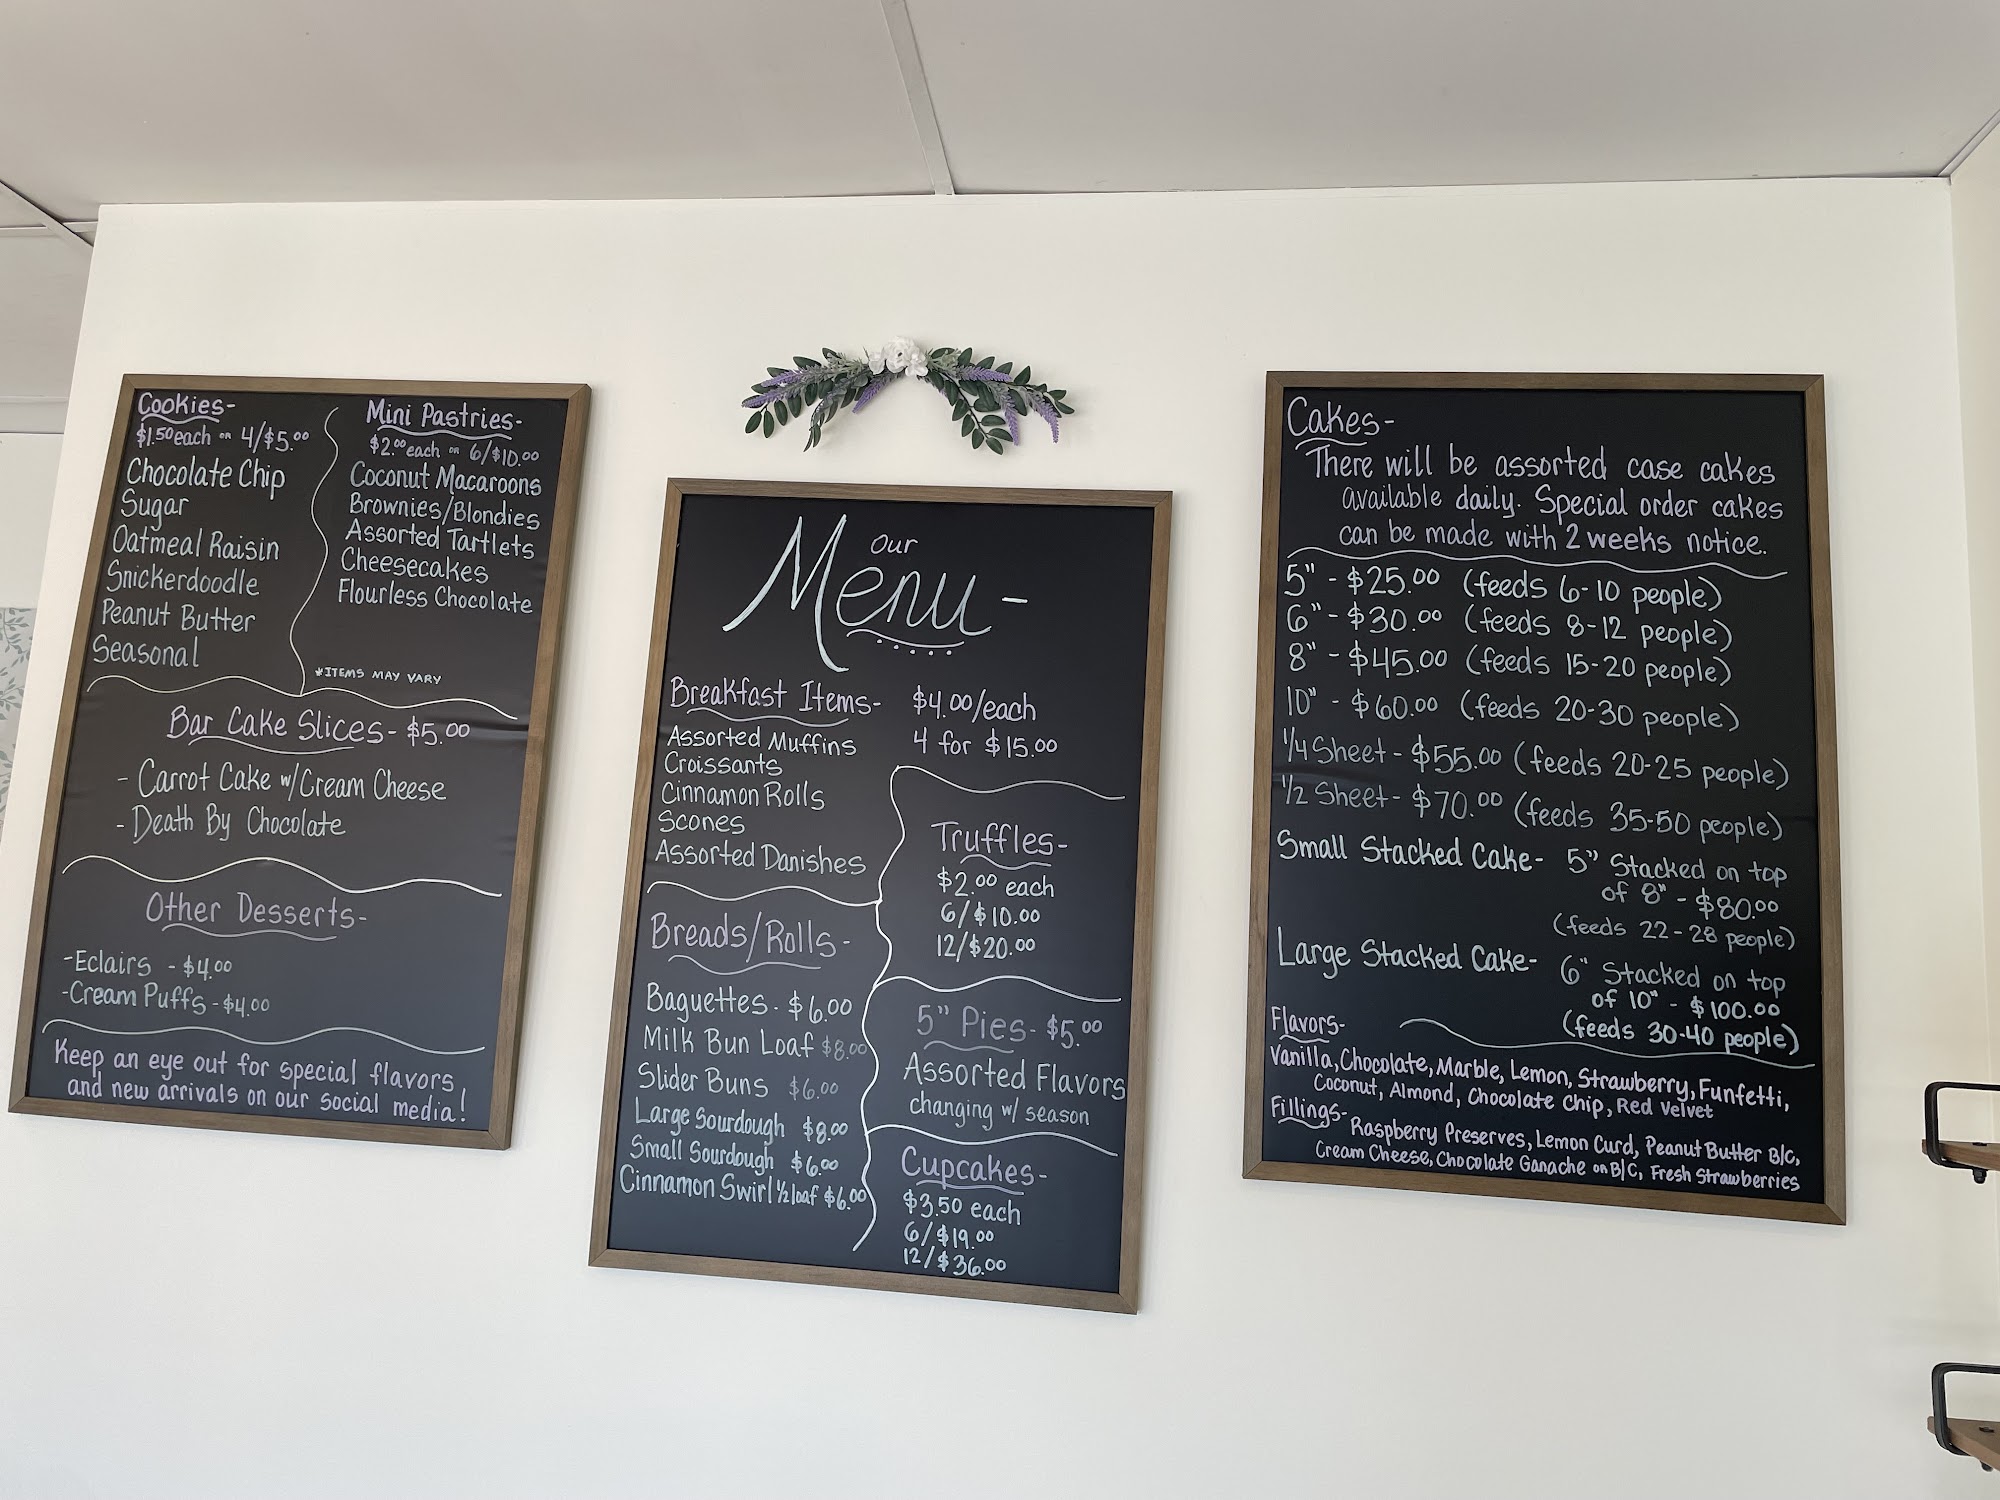 Cookies-
$1.50 each OR 4/$5.00
Chocolate Chip
Sugar
Oatmeal Raisin
Snickerdoodle
Peanut Butter
Seasonal
Mini Pastries-
$2.00 each OR 6/$10.00
Coconut Macaroons
Brownies/Blondies
Assorted Tartlets
Cheesecakes
Flourless Chocolate
*ITEMS MAY VARY
Bar Cake Slices- $5.00
- Carrot Cake w/Cream Cheese
- Death By Chocolate
Other Desserts-
-Eclairs - $4.00
-Cream Puffs - $4.00
Keep an eye out for special flavors
and new arrivals on our social media!
Our
Menu-
Breakfast Items- $4.00/each
4 for $15.00
Assorted Muffins
Croissants
Cinnamon Rolls
Scones
Assorted Danishes
Breads/Rolls-
Baguettes- $6.00
Milk Bun Loaf $8.00
Slider Buns $6.00
Large Sourdough $8.00
Small Sourdough $6.00
Cinnamon Swirl 1/2 loaf $6.00
Truffles-
$2.00 each
6/$10.00
12/$20.00
5" Pies- $5.00
Assorted Flavors
changing w/ season
Cupcakes-
$3.50 each
6/$19.00
12/$36.00
Cakes-
There will be assorted case cakes
available daily. Special order cakes
can be made with 2 weeks notice.
5" - $25.00 (feeds 6-10 people)
6" - $30.00 (feeds 8-12 people)
8" - $45.00 (feeds 15-20 people)
10" - $60.00 (feeds 20-30 people)
1/4 Sheet - $55.00 (feeds 20-25 people)
1/2 Sheet - $70.00 (feeds 35-50 people)
Small Stacked Cake- 5" Stacked on top
of 8" - $80.00
(feeds 22-28 people)
Large Stacked Cake- 6" Stacked on top
of 10" - $100.00
(feeds 30-40 people)
Flavors-
Vanilla, Chocolate, Marble, Lemon, Strawberry, Funfetti,
Coconut, Almond, Chocolate Chip, Red Velvet
Fillings- Raspberry Preserves, Lemon Curd, Peanut Butter B/C,
Cream Cheese, Chocolate Ganache OR B/C, Fresh Strawberries